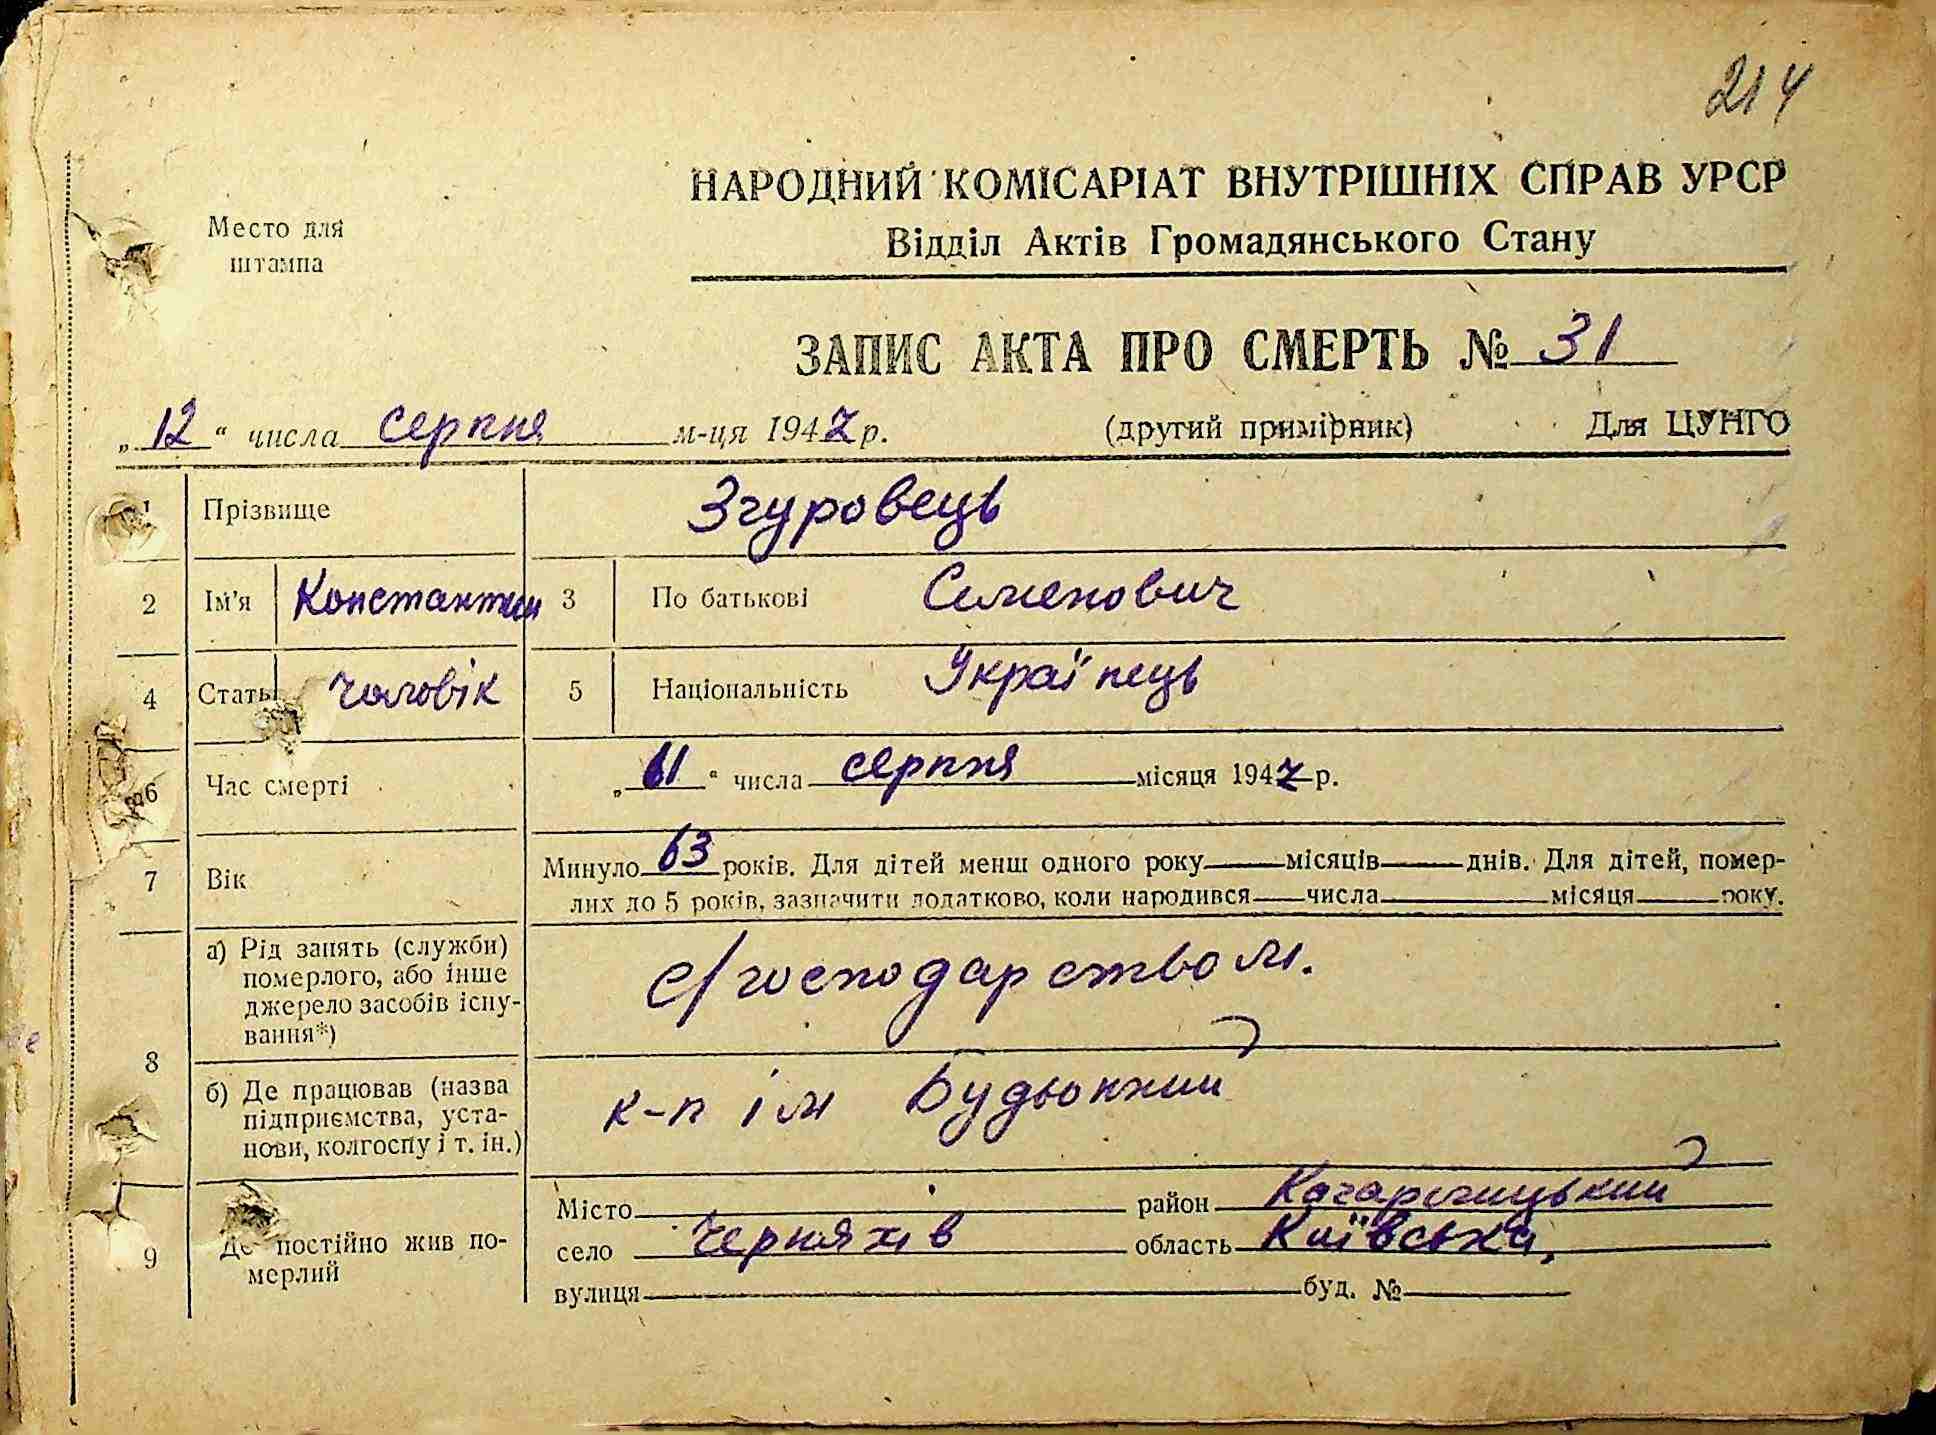 214
НАРОДНИЙ КОМІСАРІАТ ВНУТРІШНІХ СПРАВ УРСР
Відділ Актів Громадянського Стану
Место для
штампа
ЗАПИС АКТА ПРО СМЕРТЬ № 31
„12“ числа серпня м-ця 1947 р. (другий примірник) Для ЦУНГО
1 Прізвище Згуровець
2 Ім'я Константин 3 По батькові Семенович
4 Стать чоловік 5 Національність Українець
6 Час смерті „11“ числа серпня місяця 1947 р.
7 Вік Минуло 63 років. Для дітей менш одного року місяців днів. Для дітей, помер-
лих до 5 років, зазначити додатково, коли народився числа місяця року.
8 а) Рід занять (служби)
померлого, або інше
джерело засобів існу-
вання*)
с/господарством.
б) Де працював (назва
підприємства, уста-
нови, колгоспу і т. ін.)
к-п ім Будьонний
9 Де постійно жив по-
мерлий
Місто район Кагарлицький
село Черняхів область Київська,
вулиця буд. №